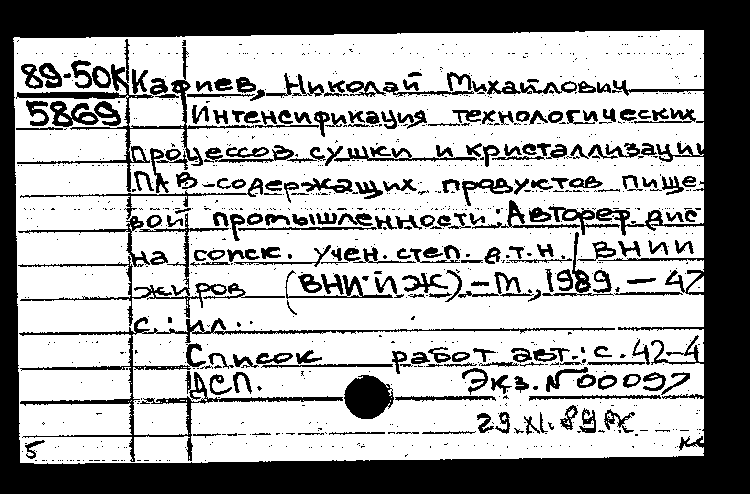 89-50К Кафиев, Николай Михайлович
5869 Интенсификация технологических
процессов сушки и кристаллизации
ПАВ-содержащих продуктов пище-
вой промышленности: Автореф. дис
на соиск. учен. степ. д.т.н. / ВНИИ
жиров (ВНИИЖ).-М., 1989. - 47
с.: ил.
Список работ авт.: с. 42-4
ДСП. Экз. №00097
29.XI.89
5